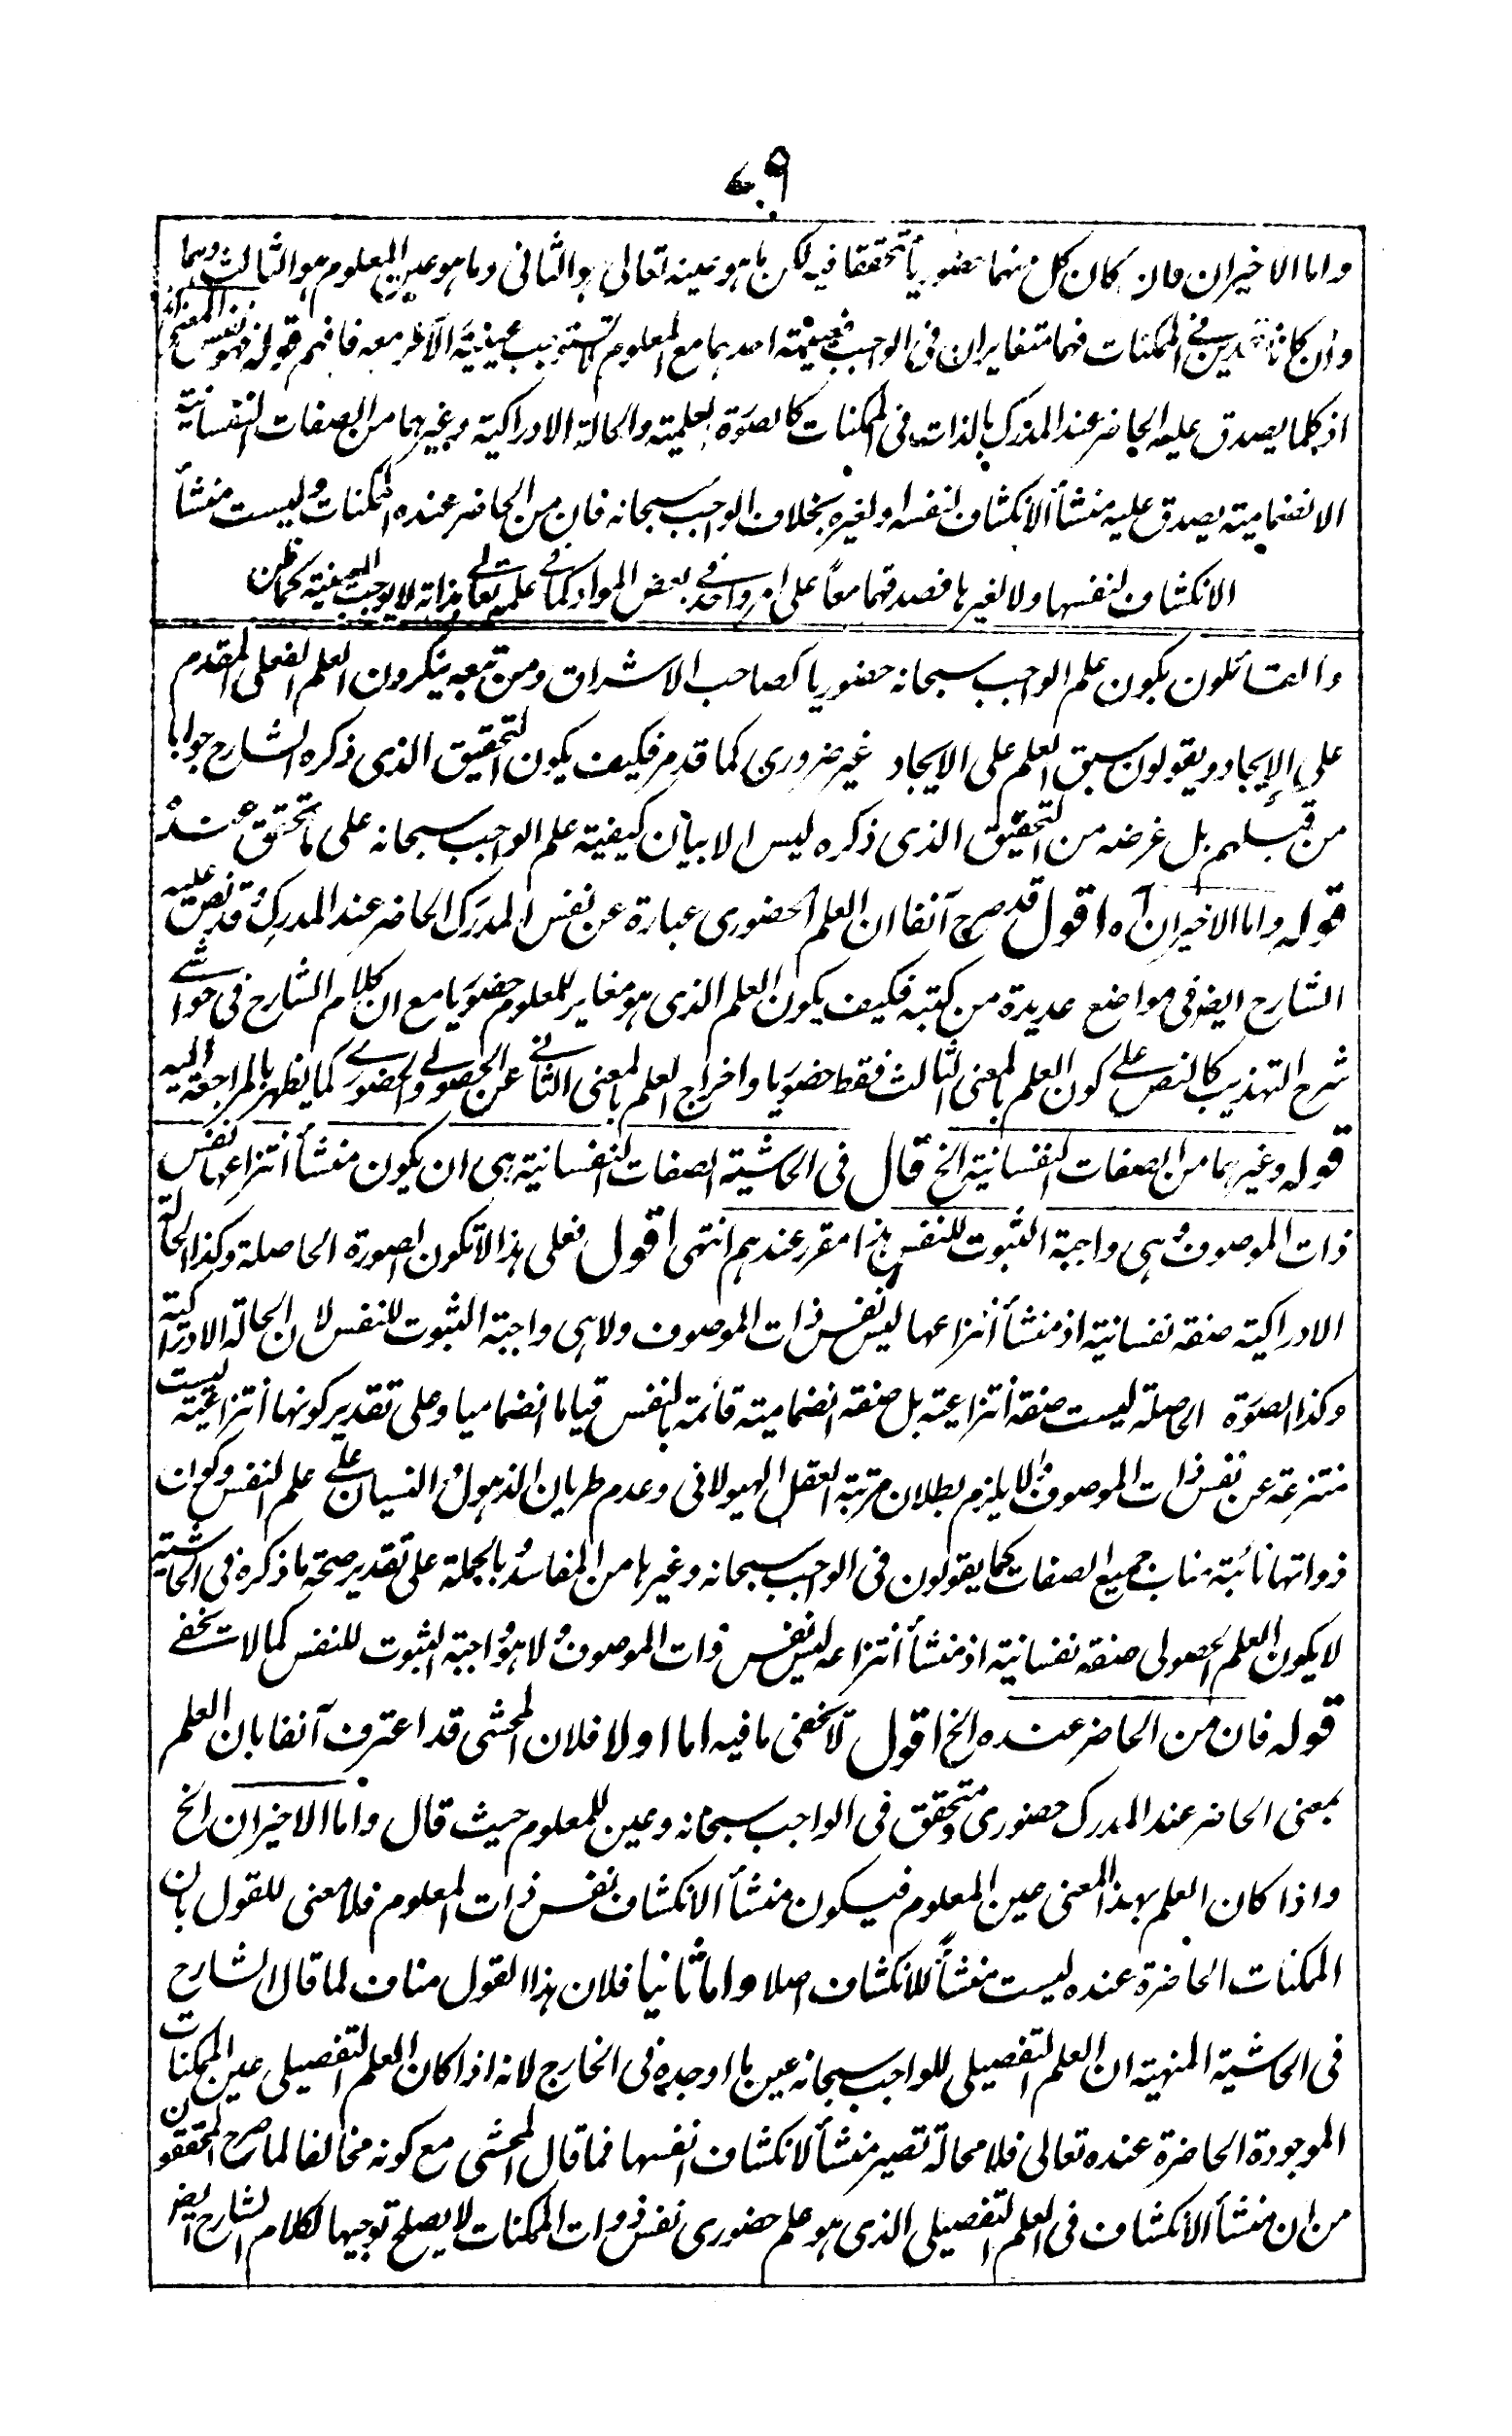 ٧٩
واما الاخيران فان كان كل منهما حضوريا متحققا فيه لكن ما هو عينه تعالى هو الثانى وما هو عين المعلوم هو الثالث وهما
وان كانا متحدين فى الممكنات فهما متغايران فى الواجب فعينية احدهما مع المعلوم لا تستوجب عينية الآخر معه فافهم قوله فهو نفس
اذ كلما يصدق عليه الحاضر عند المدرك بالذات فى الممكنات كالصورة العلمية والحالة الادراكية وغيرهما من الصفات النفسانية
الانضمامية يصدق عليه منشأ الانكشاف لنفسه او لغيره بخلاف الواجب سبحانه فان من الحاضر عنده الممكنات وليست منشأ
الانكشاف لنفسها ولا لغيرها فصدقهما معاً على امر واحد فى بعض المواد كما فى علمه تعالى بذاته لا يوجب العينية كما ظن
والقائلون بكون علم الواجب سبحانه حضوريا كصاحب الاشراق ومن تبعه ينكرون العلم الفعلى المقدم
على الايجاد ويقولون سبق العلم على الايجاد غير ضرورى كما قد مر فكيف يكون التحقيق الذى ذكره الشارح جوابا
من قبلهم بل غرضه من التحقيق الذى ذكره ليس الا بيان كيفية علم الواجب سبحانه على ما تحقق عنده
قوله واما الاخيران آه اقول قد صرح آنفا ان العلم الحضورى عبارة عن نفس المدرَك الحاضر عند المدرِك وقد نص عليه
الشارح ايضا فى مواضع عديدة من كتبه فكيف يكون العلم الذى هو مغاير للمعلوم حضوريا مع ان كلام الشارح فى حواشى
شرح التهذيب كالنص على كون العلم بالمعنى الثالث فقط حضوريا واخراج العلم بالمعنى الثانى عن الحصولى والحضورى كما يظهر بالمراجعة اليه
قوله وغيرهما من الصفات النفسانية الخ قال فى الحاشية الصفات النفسانية هى ان يكون منشأ انتزاعها نفس
ذات الموصوف وهى واجبة الثبوت للنفس هذا مقرر عندهم انتهى اقول فعلى هذا لا تكون الصورة الحاصلة وكذا الحالة
الادراكية صفة نفسانية اذ منشأ انتزاعها ليس نفس ذات الموصوف ولا هى واجبة الثبوت للنفس لان الحالة الادراكية
وكذا الصورة الحاصلة ليست صفة انتزاعية بل صفة انضمامية قائمة بالنفس قياما انضماميا وعلى تقدير كونها انتزاعية ليست
منتزعة عن نفس ذات الموصوف والا يلزم بطلان مرتبة العقل الهيولانى وعدم طريان الذهول والنسيان على علم النفس وكون
ذواتها نائبة مناب جميع الصفات كما يقولون فى الواجب سبحانه وغيرها من المفاسد وبالجملة على تقدير صحة ما ذكره فى الحاشية
لا يكون العلم الحصولى صفة نفسانية اذ منشأ انتزاعه ليس نفس ذات الموصوف ولا هو واجبة الثبوت للنفس كما لا يخفى
قوله فان من الحاضر عنده الخ اقول لا يخفى ما فيه اما اولا فلان المحشى قد اعترف آنفا بان العلم
بمعنى الحاضر عند المدرك حضورى ومتحقق فى الواجب سبحانه وعين للمعلوم حيث قال واما الاخيران الخ
واذا كان العلم بهذا المعنى عين المعلوم فيكون منشأ الانكشاف نفس ذات المعلوم فلا معنى للقول بان
الممكنات الحاضرة عنده ليست منشأ للانكشاف اصلا واما ثانيا فلان هذا القول مناف لما قال الشارح
فى الحاشية المنهية ان العلم التفصيلى للواجب سبحانه عين ما اوجده فى الخارج لانه اذا كان العلم التفصيلى عين الممكنات
الموجودة الحاضرة عنده تعالى فلا محالة تصير منشأ لانكشاف انفسها فما قال المحشى مع كونه مخالفا لما صرح المحققون
من ان منشأ الانكشاف فى العلم التفصيلى الذى هو علم حضورى نفس ذوات الممكنات لا يصلح توجيها لكلام الشارح ايضا